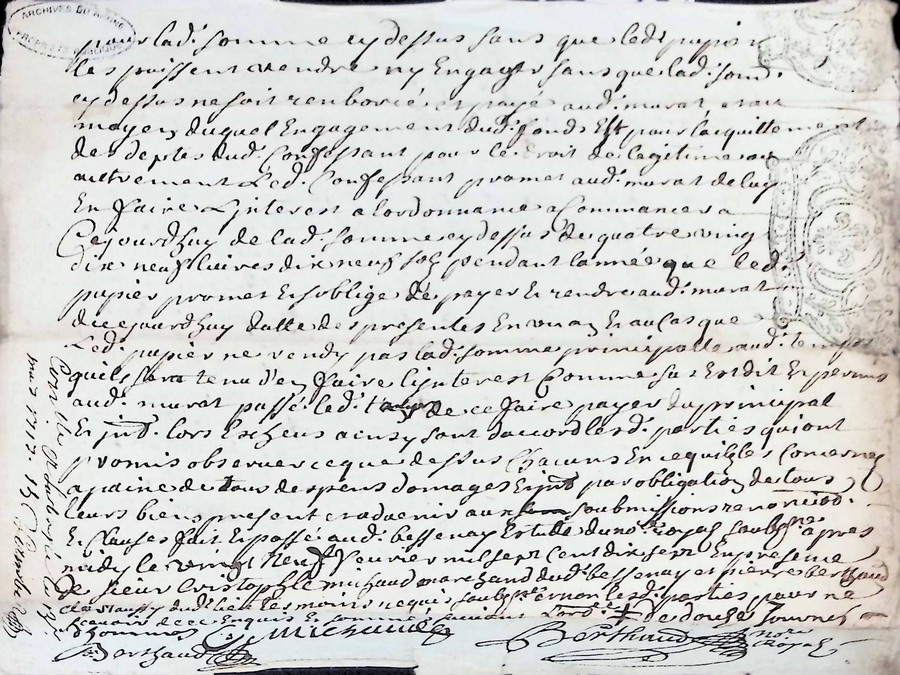 ARCHIVES DU RHONE
PROPRIETE PUBLIQUE
pour lad: somme cy dessus sans que led: papier
les puissent vendre ny Engager sans que lad: som:
cy dessus ne soit renborcé et payé aud: murat et au
moyen duquel Engagement dud: fonds Est pour lacquittement
des deptes dud: Confessant pour le droit de legitime ou
autrement Led: Confessant promet aud: murat de luy
En faire Linterest a lordonnance a Commancer a
Cejourdhuy de lad: somme cy dessus de quatre ving
dix neuf livres dix neuf solz pendant lannée que led:
papier promet Et soblige de payer Et rendre aud: murat
dicejourdhuy datte des presentes En un an Et au Cas que
Led: papier ne rendy pas lad: somme principalle aud: temps
quil sera tenu d'en faire linterest Comme sus Est dit Et permis
aud: murat passé led: de ce faire payer du principal
Et int: lors Escheus a cusy sont daccord lesd: parties qui ont
promis observer ce que dessus Chacuns En ce quil les Concerne
a paine de tous despens domages Et int par obligation de tous
leurs biens present et advenir aux soubmissions renonciaons:
Et Clauses fait Et passé aud: bessenay Estude du no:re Royal soubsne apres
midy le vingt Neuf feuvrier mil sept Cent dix sept En presence
de sieur Cristophle michaud marchand dud: bessenay et pierre berthaud
dud: lieu tesmoins requis soubsnes et non lesd: parties pour ne
scavoir de ce Enquis Et sommé de douze sournes
Michaud Berthaud nore
Berthaud Royal
Con:lé
mil 7 1717. 13